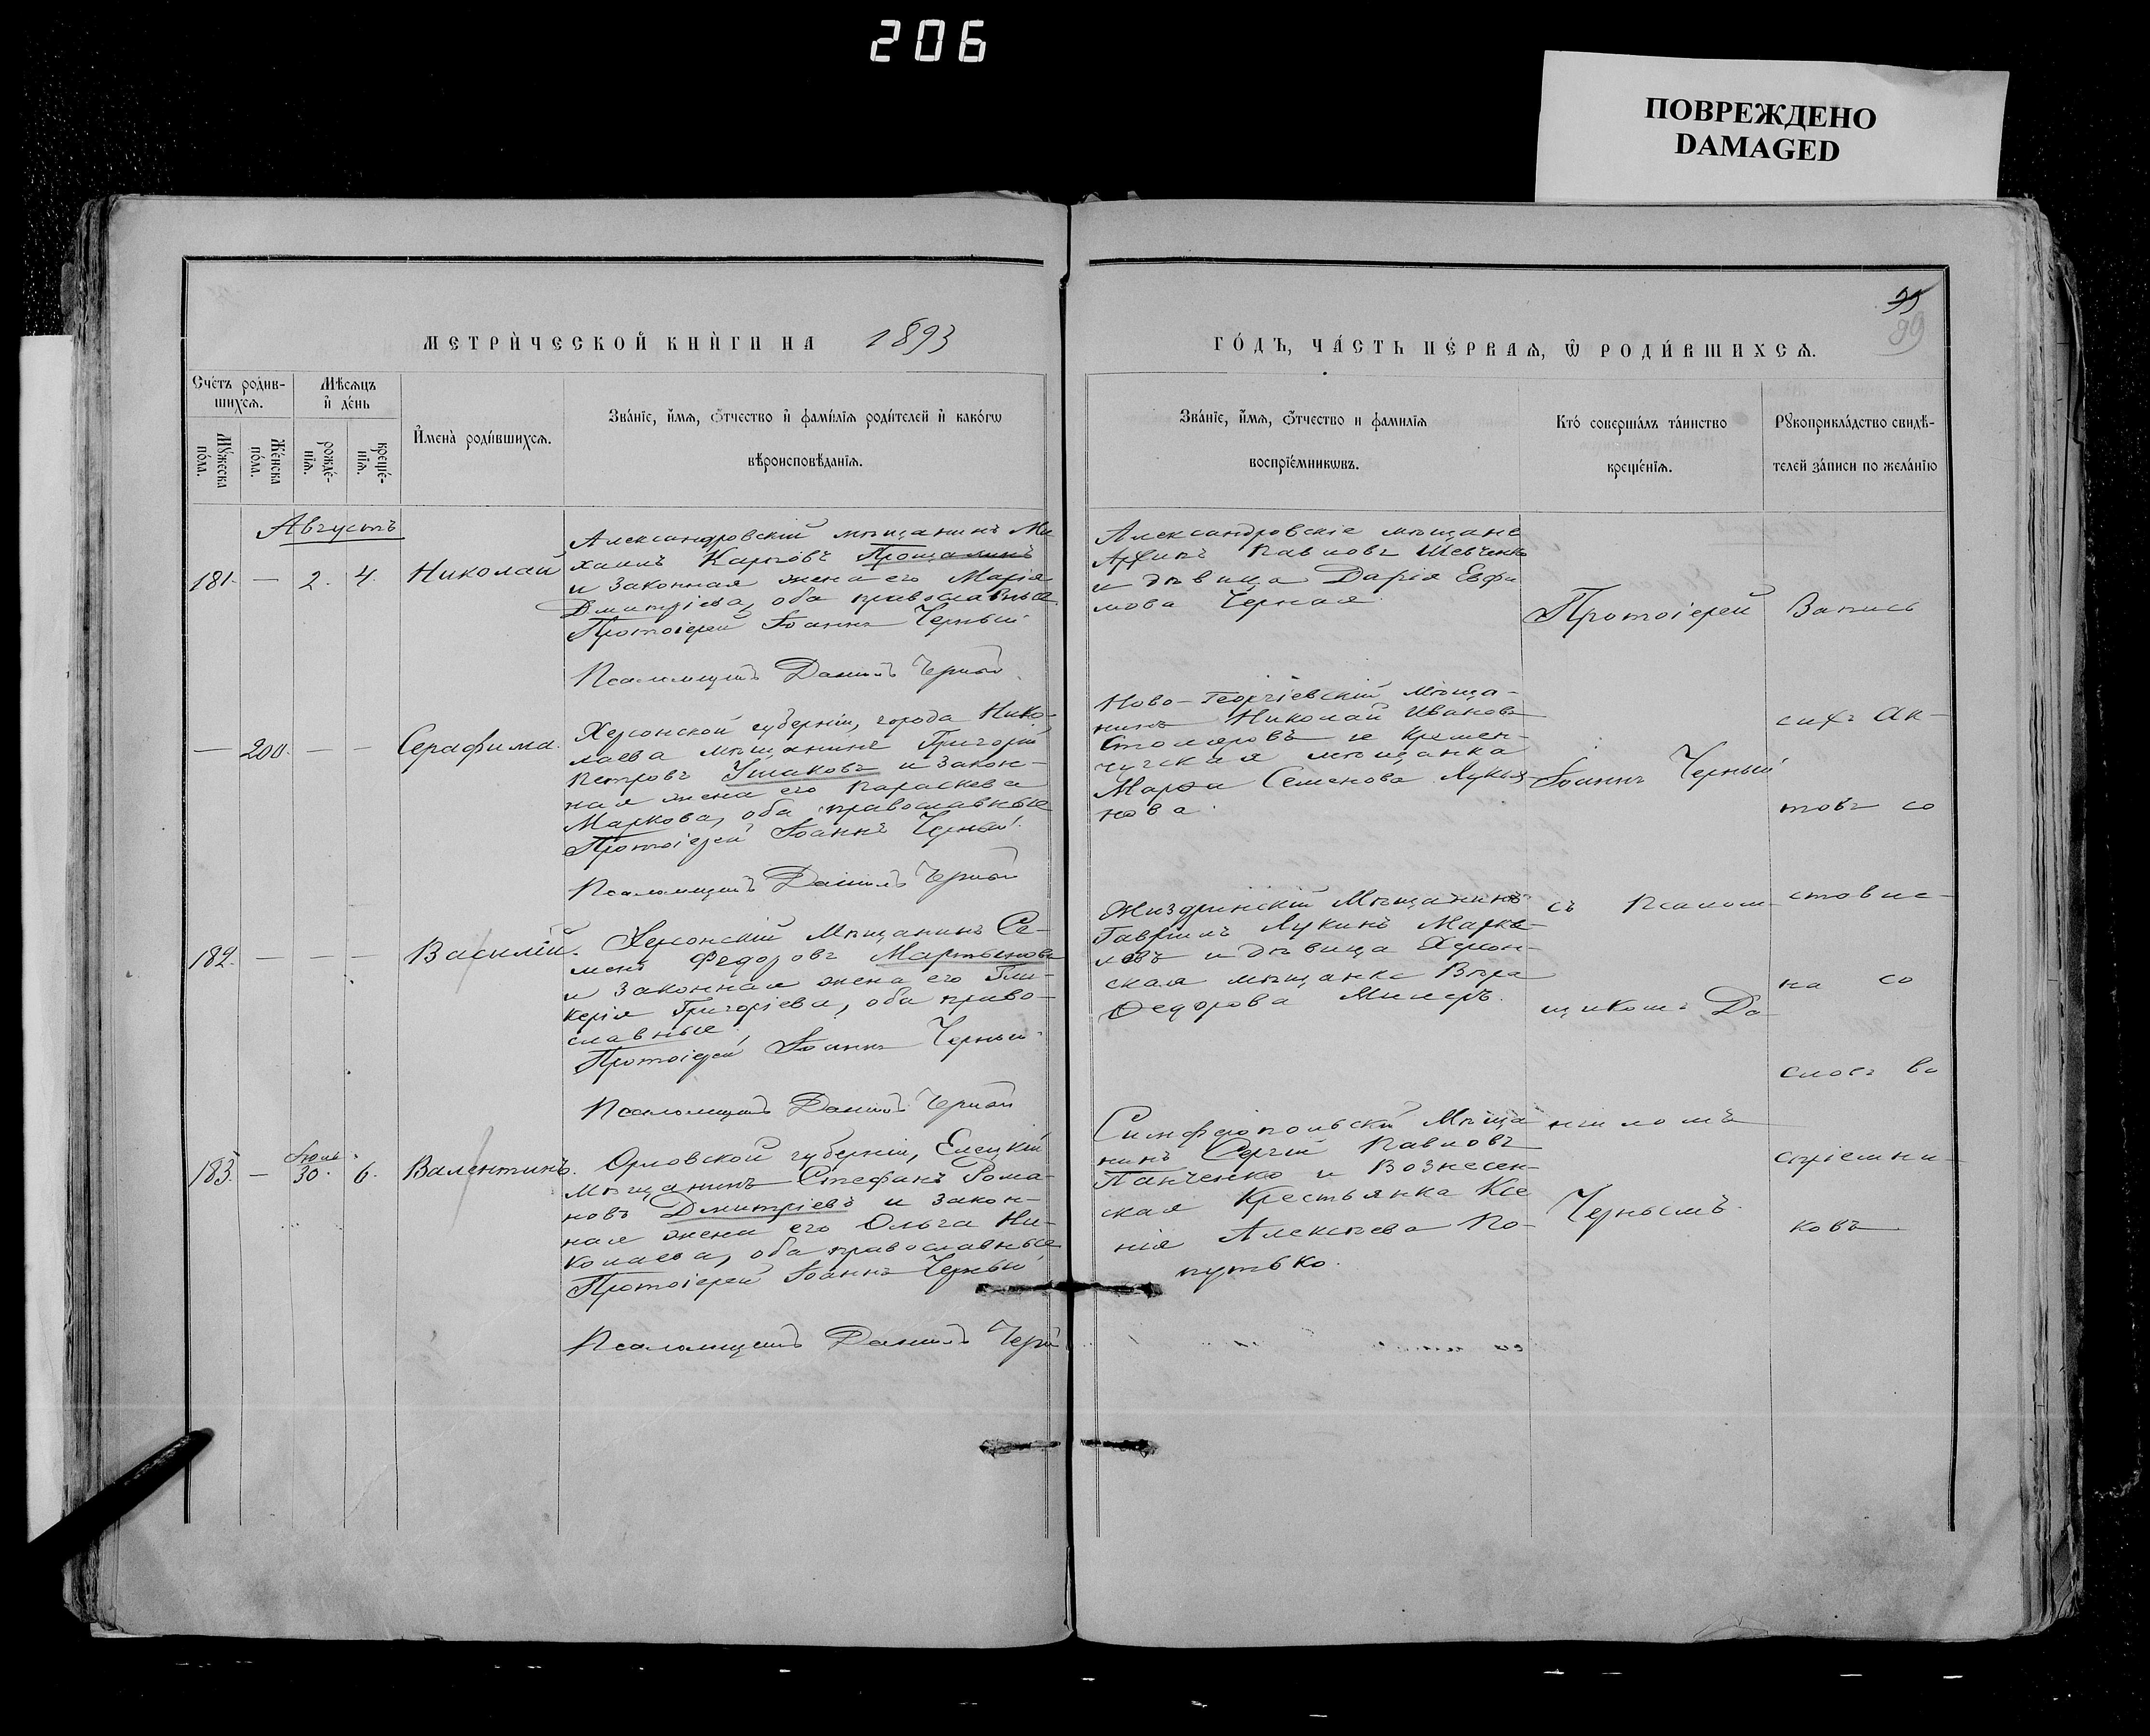 206
ПОВРЕЖДЕНО
DAMAGED
МЕТРИЧЕСКОЙ КНИГИ НА 1893
ГОДЪ, ЧАСТЬ ПЕРВАЯ, Ѡ РОДИВШИХСЯ.
99
Счетъ родив-
шихся.
Мѣсяцъ
и день
Мужеска
пола.
Женска
пола.
рожде-
нія.
креще-
нія.
Имена родившихся.
Званіе, имя, отчество и фамилія родителей и какогѡ
вѣроисповѣданія.
Званіе, имя, отчество и фамилія
воспріемникѡвъ.
Кто совершалъ таинство
крещенія.
Рукоприкладство свидѣ-
телей записи по желанію
Августъ
181. — 2. 4. Николай
Александровскій мѣщанинъ Ми
хаилъ Карповъ
и законная жена его Марія
Дмитріева, оба православные
Протоіерей Іоаннъ Черный.
Псаломщикъ Даніилъ Черный
Александровскіе мѣщане
Павловъ Шевченко
и дѣвица Дарія Евфи
мова Черная.
— 200. — — Серафима.
Херсонской губерніи, города Нико-
лаева мѣщанинъ Григорій
Петровъ Ушаковъ и закон-
ная жена его Параскева
Маркова, оба православные
Протоіерей Іоаннъ Черный.
Псаломщикъ Даніилъ Черный
Ново-Георгіевскій мѣща-
нинъ Николай Ивановъ
Столяровъ и Кремен-
чугская мѣщанка
Марѳа Семенова Лукья-
нова.
182. — — — Василій.
Херсонскій Мѣщанинъ Се-
менъ Федоровъ Мартыновъ
и законная жена его Гли-
керія Григоріева, оба право-
славные.
Протоіерей Іоаннъ Черный.
Псаломщикъ Даніилъ Черный
Жиздринскій Мѣщанинъ
Гавріилъ Лукинъ Марке-
ловъ и дѣвица Херсон-
ская мѣщанка Вѣра
Федорова Милеръ.
183. — Іюль 30. 6. Валентинъ.
Орловской губерніи, Елецкій
Мѣщанинъ Стефанъ Рома-
новъ Дмитріевъ и закон-
ная жена его Ольга Ни-
колаева, оба православные
Протоіерей Іоаннъ Черный
Псаломщикъ Даніилъ Черн
Симферопольскій Мѣща
нинъ Сергій Павловъ
Панченко и Вознесен-
ская Крестьянка Ксе
нія Алексѣева По-
путько.
Протоіерей
Іоаннъ Черный
съ Псалом-
щикомъ Да-
ніиломъ
Чернымъ.
Запись
сихъ ак-
товъ со
стовле-
на со
словъ во
спріемни-
ковъ